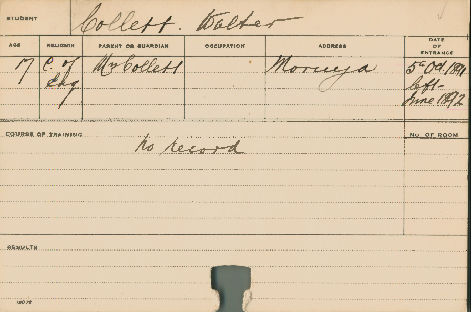 STUDENT Collett. Walter
AGE RELIGION PARENT OR GUARDIAN OCCUPATION ADDRESS DATE OF ENTRANCE
17 C. of Eng Mr Collett Moruya 5th Oct 1891
left-
June 1892
COURSE OF TRAINING NO. OF ROOM
No record
RESULTS